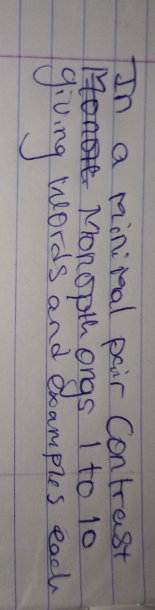 In a minimal pair Contrast
Monopthongs 1 to 10
giving words and examples each